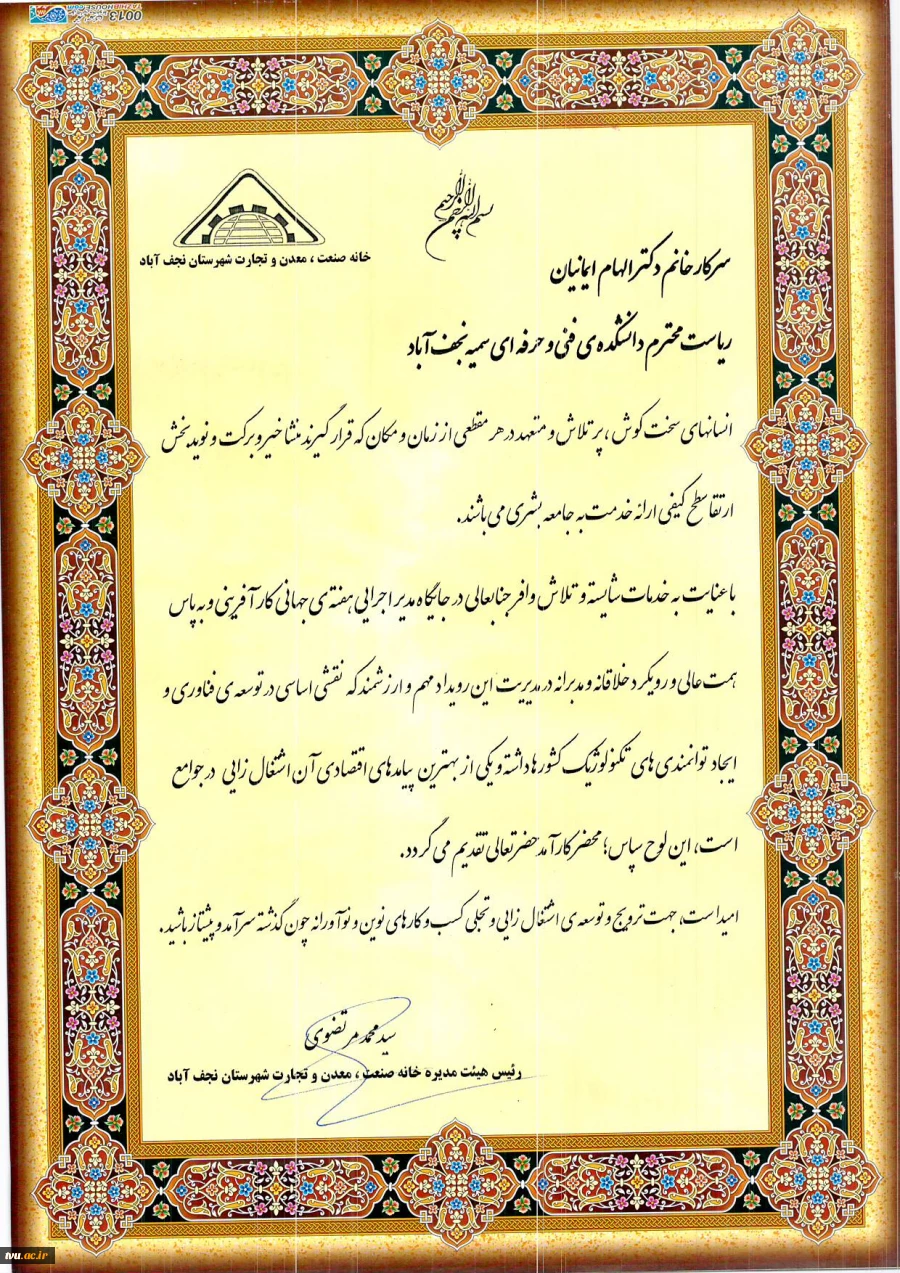 بسم الله الرحمن الرحیم
خانه صنعت ، معدن و تجارت شهرستان نجف آباد
سرکار خانم دکتر الهام ایمانیان
ریاست محترم دانشکده ی فنی و حرفه ای سمیه نجف آباد
انسانهای سخت کوش ، پر تلاش و متعهد در هر مقطعی از زمان و مکان که قرار گیرند منشا خیر و برکت و نوید بخش
ارتقا سطح کیفی ارائه خدمت به جامعه بشری می باشند.
با عنایت به خدمات شایسته و تلاش وافر جنابعالی در جایگاه مدیر اجرایی هفته ی جهانی کارآفرینی و به پاس
همت عالی و رویکرد خلاقانه و مدبرانه در مدیریت این رویداد مهم و ارزشمند که نقشی اساسی در توسعه ی فناوری و
ایجاد توانمندی های تکنولوژیک کشورها داشته و یکی از بهترین پیامدهای اقتصادی آن اشتغال زایی در جوامع
است، این لوح سپاس؛ محضر کارآمد حضرتعالی تقدیم می گردد.
امید است، جهت ترویج و توسعه ی اشتغال زایی و تجلی کسب و کارهای نوین و نوآورانه چون گذشته سرآمد و پیشتاز باشید.
سید محمد مرتضوی
رئیس هیئت مدیره خانه صنعت ، معدن و تجارت شهرستان نجف آباد
tvu.ac.ir